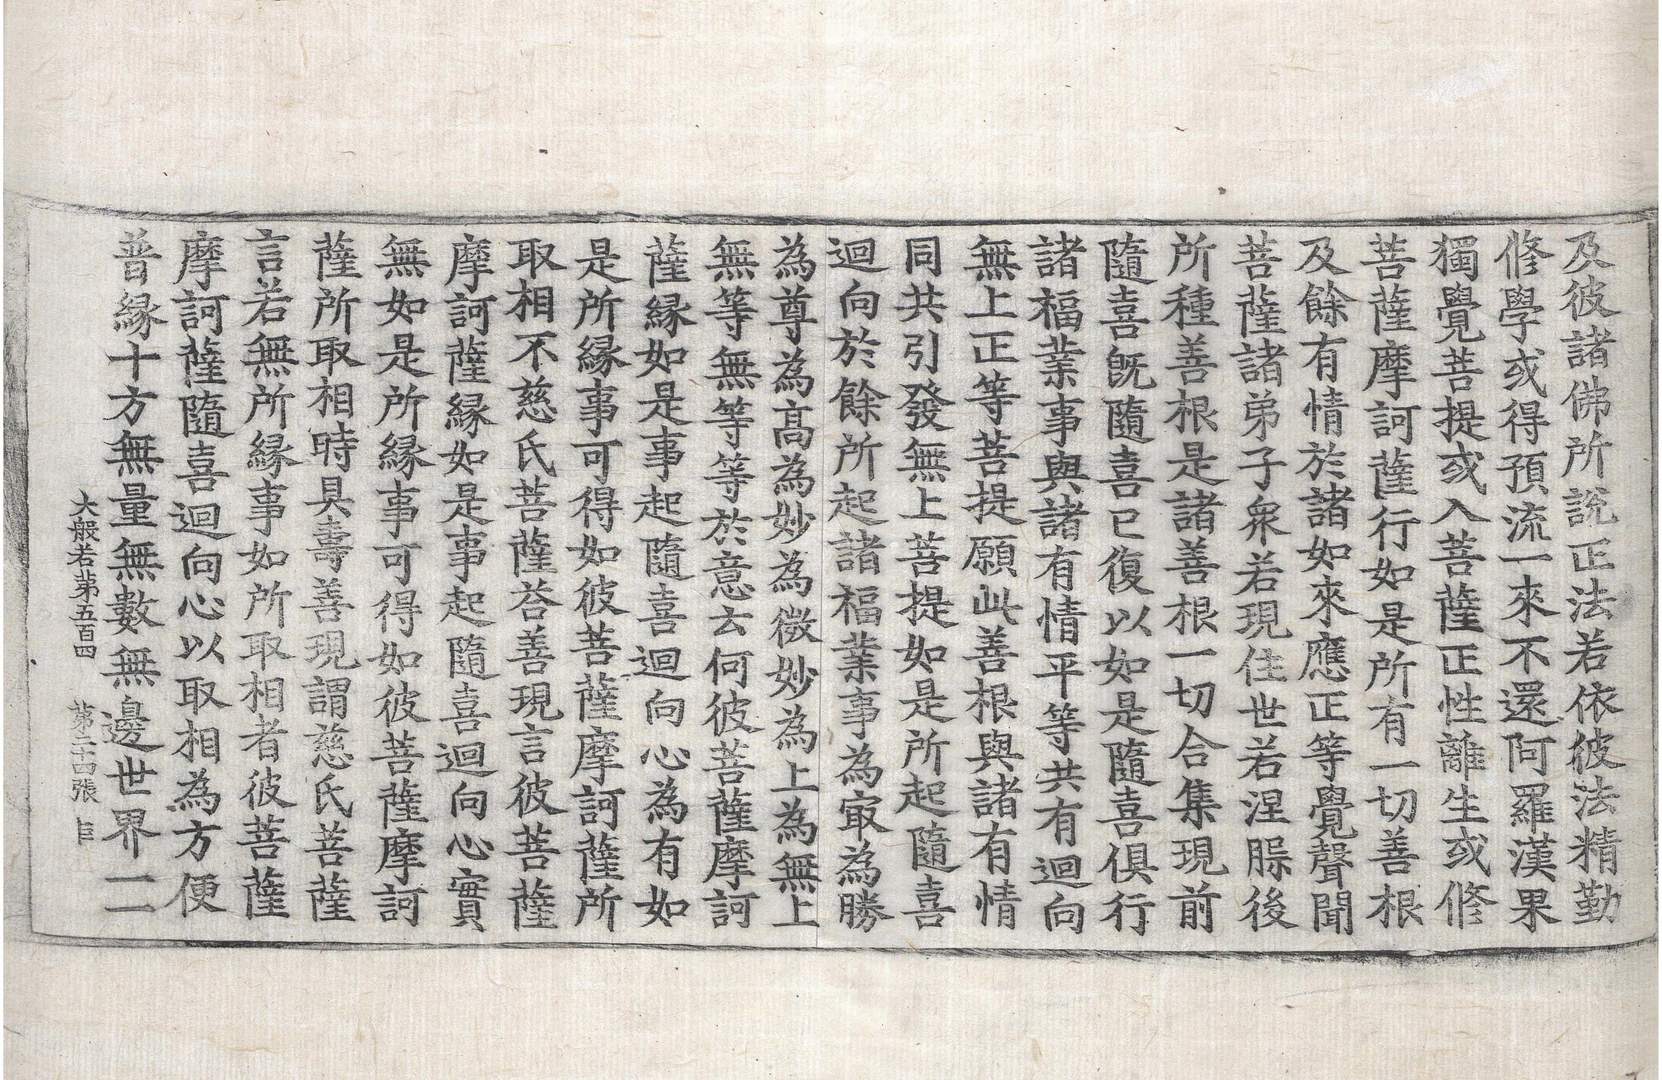 及彼諸佛所說正法若依彼法精勤
修學或得預流一來不還阿羅漢果
獨覺菩提或入菩薩正性離生或修
菩薩摩訶薩行如是所有一切善根
及餘有情於諸如來應正等覺聲聞
菩薩諸弟子衆若現住世若涅槃後
所種善根是諸善根一切合集現前
隨喜旣隨喜已復以如是隨喜俱行
諸福業事與諸有情平等共有迴向
無上正等菩提願此善根與諸有情
同共引發無上菩提如是所起隨喜
迴向於餘所起諸福業事為冣為勝
為尊為高為妙為微妙為上為無上
無等無等等於意云何彼菩薩摩訶
薩緣如是事起隨喜迴向心為有如
是所緣事可得如彼菩薩摩訶薩所
取相不慈氏菩薩荅善現言彼菩薩
摩訶薩緣如是事起隨喜迴向心實
無如是所緣事可得如彼菩薩摩訶
薩所取相時具壽善現謂慈氏菩薩
言若無所緣事如所取相者彼菩薩
摩訶薩隨喜迴向心以取相為方便
普緣十方無量無數無邊世界一一
大般若第五百四 第二十四張